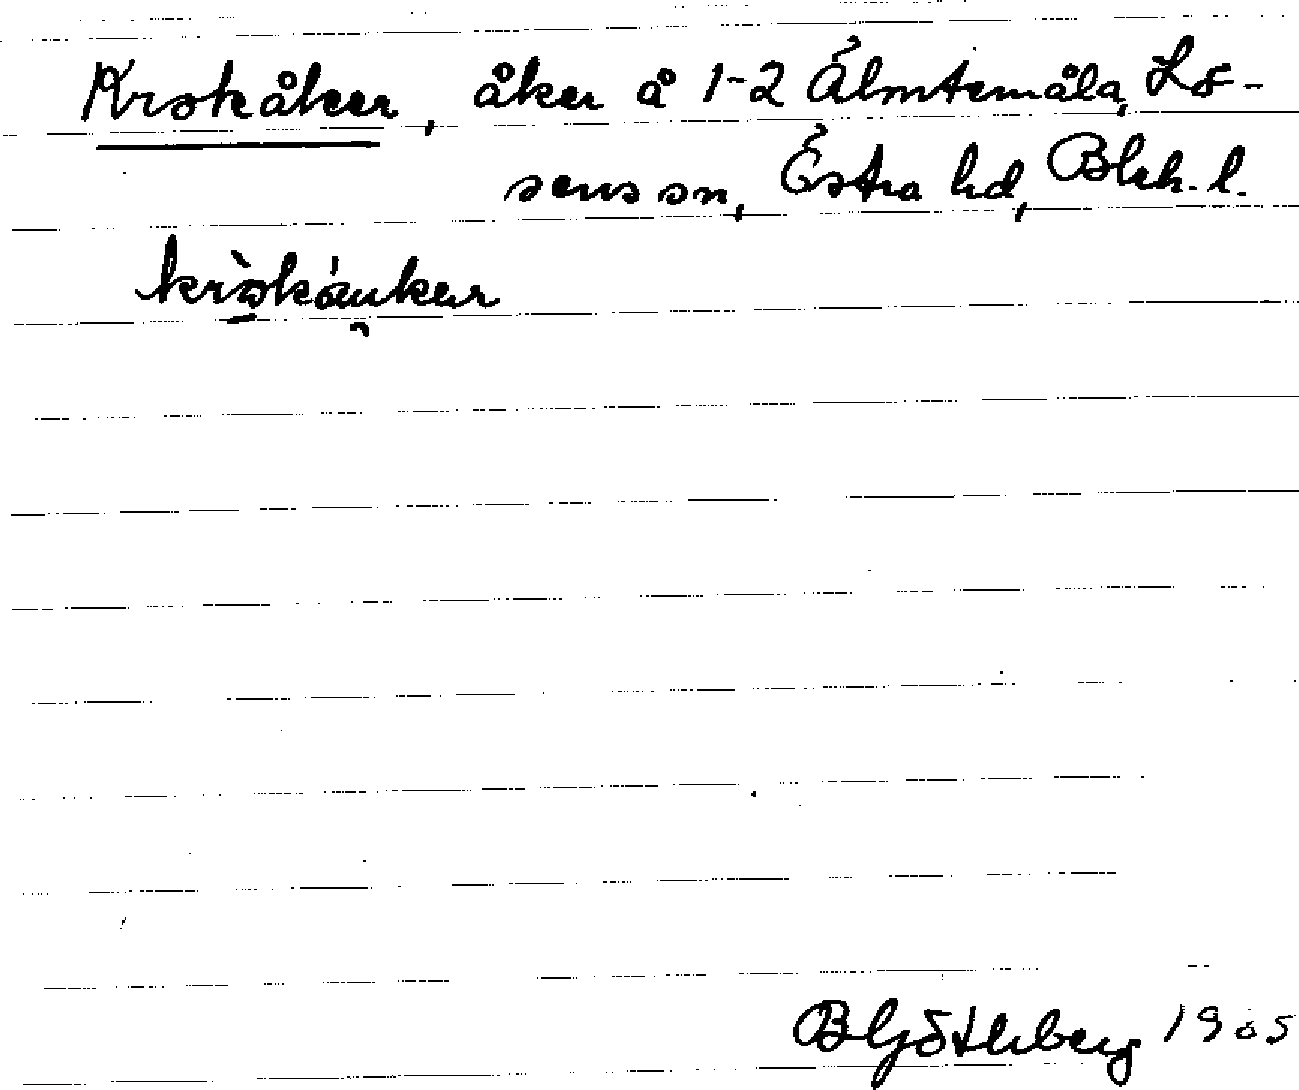 Krokåker, åker å 1-2 Älmtamåla, Lö-
sens sn, Östra hd, Blek. l.
kròkáuker
B Götlberg 1905